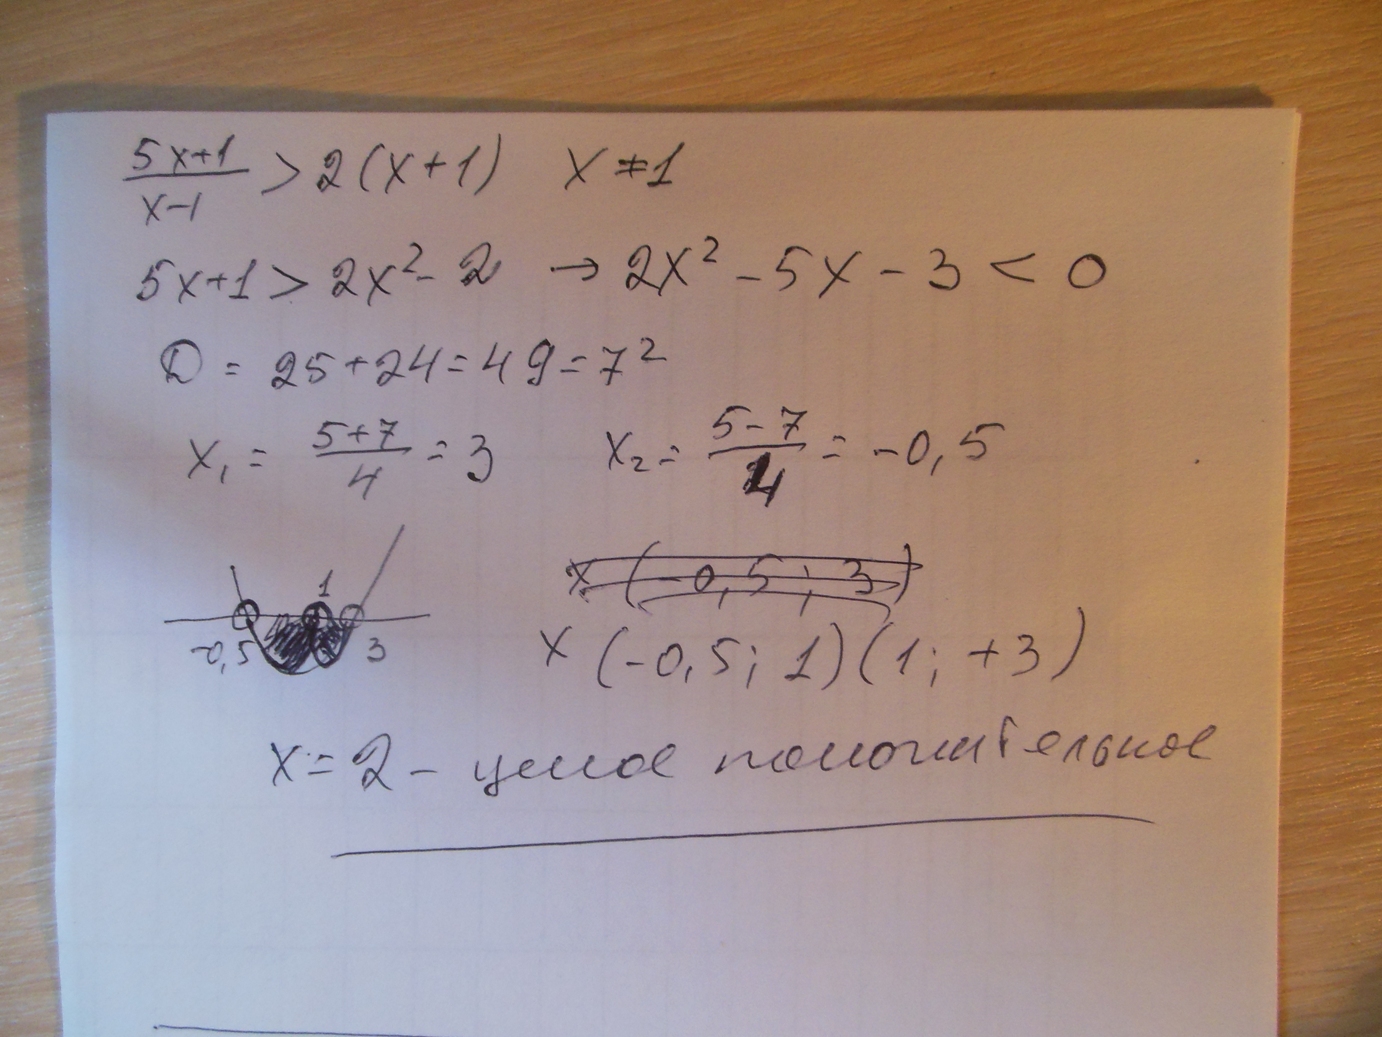 5x+1/x-1 > 2(x+1) x ≠ 1
5x+1 > 2x² - 2 → 2x² - 5x - 3 < 0
D = 25+24 = 49 = 7²
x₁ = 5+7/4 = 3 x₂ = 5-7/4 = -0,5
x (-0,5; 3)
-0,5 1 3
x (-0,5; 1)(1; +3)
x = 2 - целое положительное